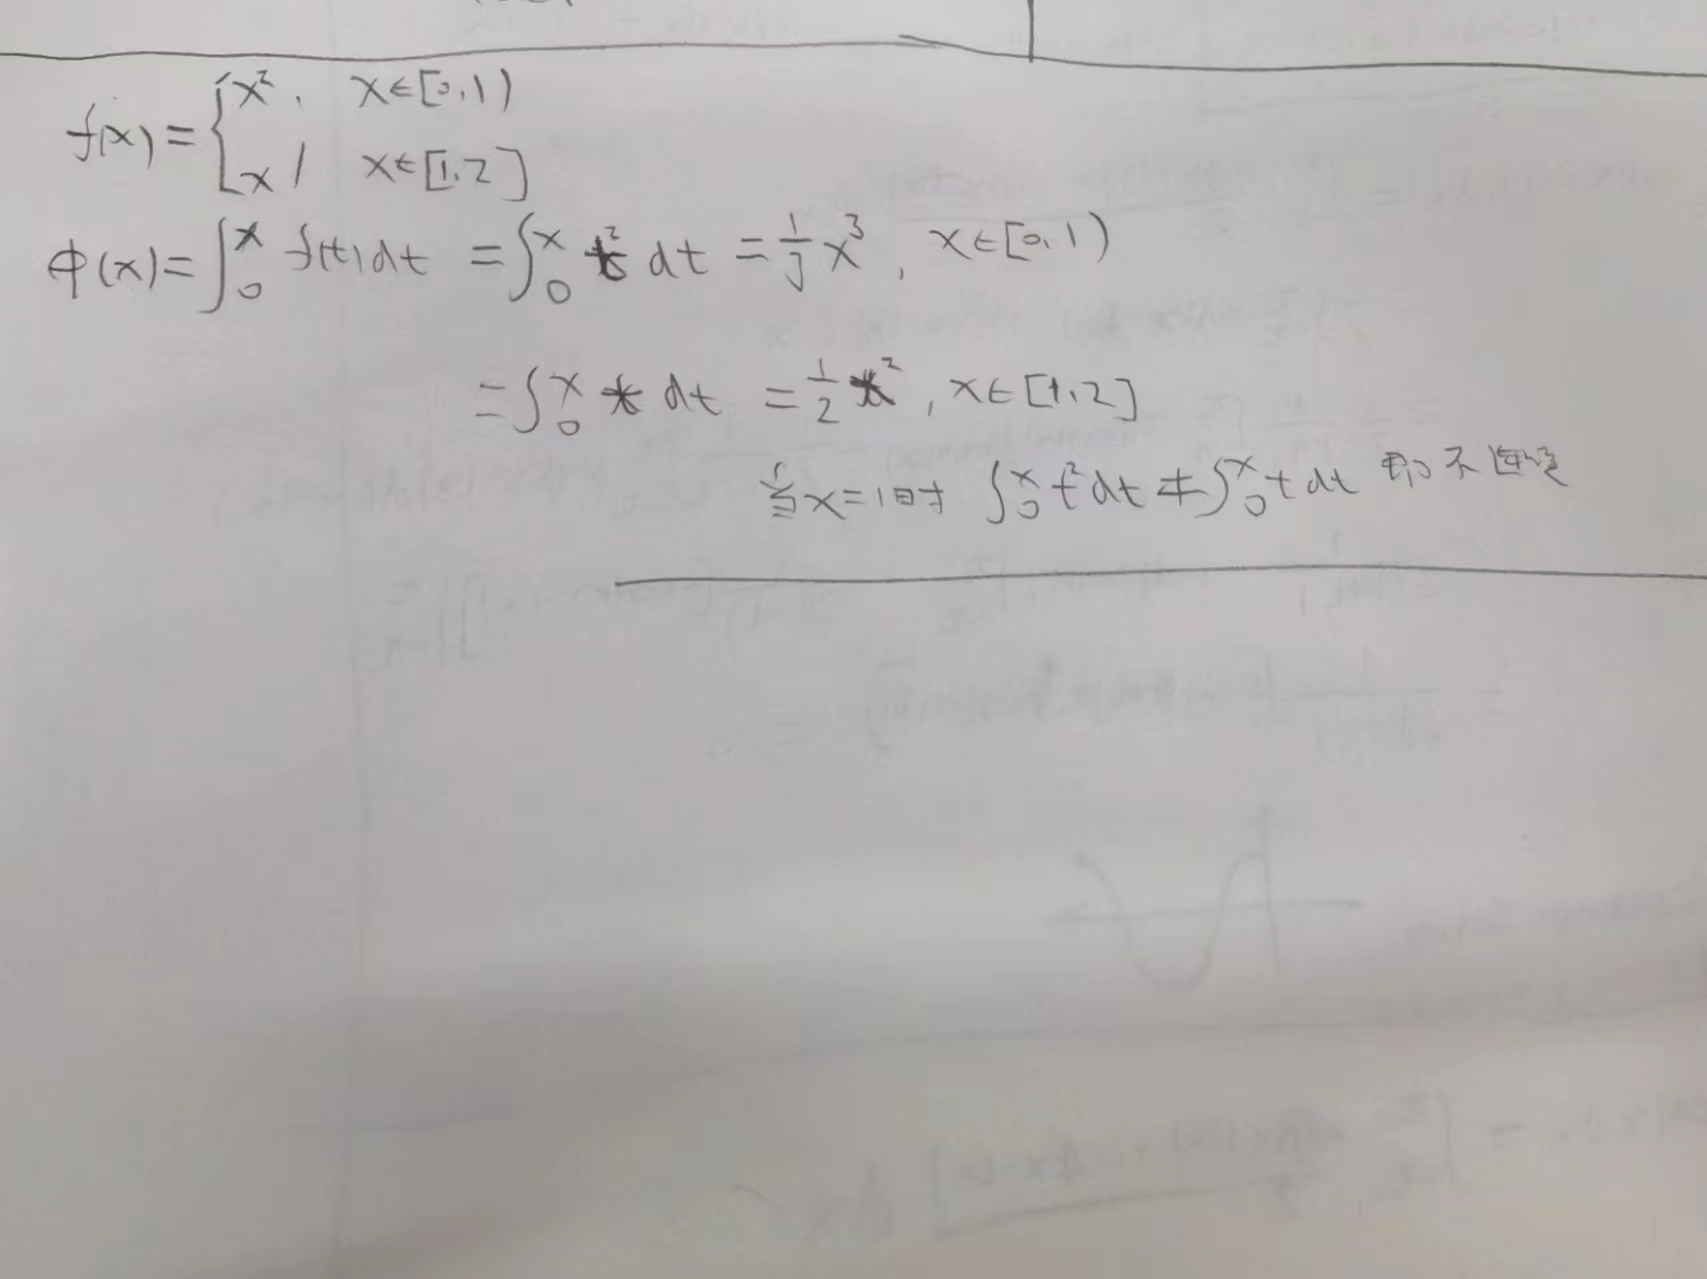 f(x) = { x², x∈[0,1)
x, x∈[1,2]
Φ(x) = ∫₀ˣ f(t)dt = ∫₀ˣ t² dt = 1/3 x³, x∈[0,1)
= ∫₀ˣ t dt = 1/2 x², x∈[1,2]
当x=1时 ∫₀ˣ t² dt ≠ ∫₀ˣ t dt 即不连续